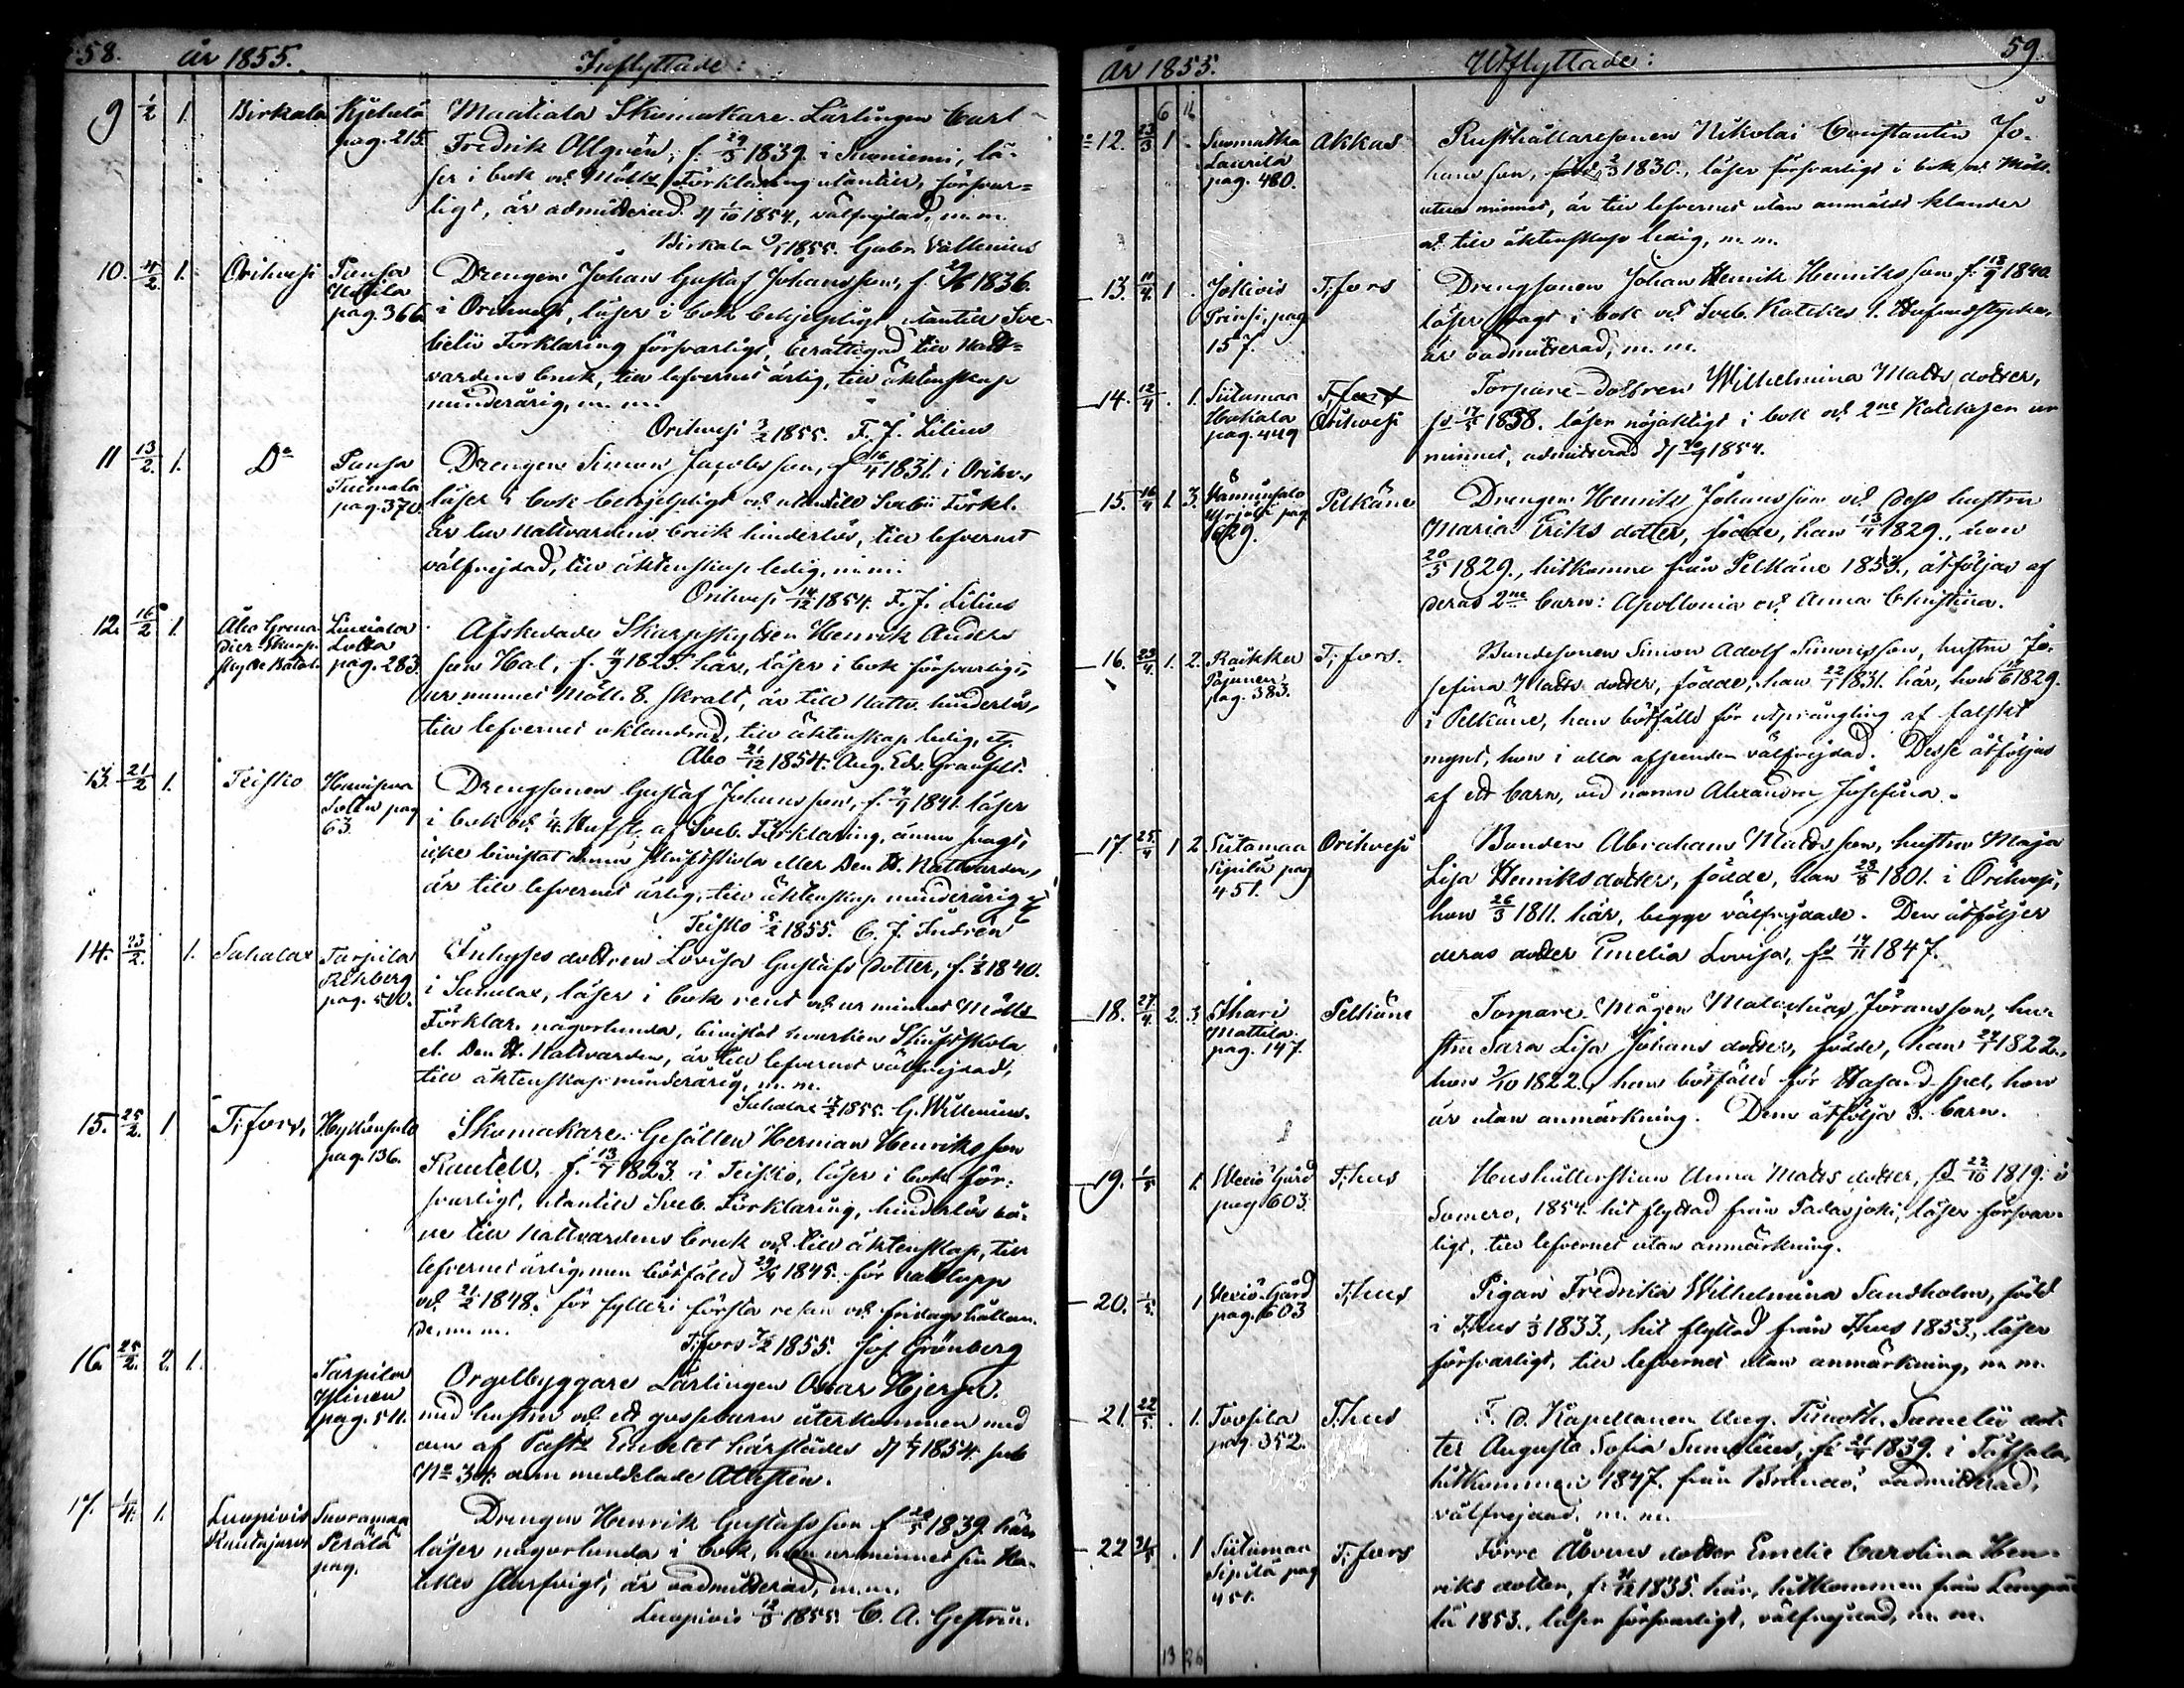 58. år 1855. Inflyttade:
9 1/2 1. Birkala Kjehelä pag. 215.
Maatiala Skomakare-Lärlingen Carl
Fredrik Allgrén, f. 29/3 1839. i Suoniemi, lä-
ser i bok och Mölls Förklaring utantill, försvar-
ligt, är admitterad 1/10 1854, välfrejdad, m.m.
Birkala 1855. Gabr. Vallenius
10. 4/2. 1. Orihvesi pag. 366
Drengen Johan Gustaf Johansson, f. 1836.
i Orihvesi, läser i bok behjelpligt utantill Sve-
belii Förklaring försvarligt, berättigad till Natt-
vardens bruk, till lefvernet ärlig, till äktenskap
minderårig, m. m.
Orihvesi 3/2 1855. F. J. Lilius
11 13/2. 1. Do pag. 370.
Drengen Simon Jacobsson, f. 16/4 1831. i Orihv.
läser i bok behjelpligt och utantill Sveb. Förkl.
är till Nattvardens bruk hinderlös, till lefvernet
välfrejdad, till äktenskap ledig, m.m.
Orihvesi 14/12 1854. F. J. Lilius
12. 16/2 1. Åbo Grena-
dier-Skarp-
pag. 283.
Afskedade Skarpskytten Henrik Anders
son Hal, f. 11/9 1825 här, läser i bok försvarligt,
ur minnet Möll. 8. skralt, är till Nattv. hinderlös,
till lefvernet oklandrad, till äktenskap ledig, etc.
Åbo 21/12 1854. Aug. Edv. Granfelt.
13. 21/2 1. Teisko pag 63.
Drengsonen Gustaf Johansson, f. 4/9 1841. läser
i bok och 4. Hufst. af Sveb. Förklaring, ännu svagt,
icke bivistat ännu Skriftskola eller Den H. Nattvarden,
är till lefvernet ärlig, till äktenskap minderårig
Teisko 5/2 1855. C. J. Indrén
14. 23/2. 1. Sahalax Tarpila Rehberg pag. 510.
Inhyses dottren Lovisa Gustafs dotter, f. 1840.
i Sahalax, läser i bok rent och ur minnet Mölls
Förklar. någorlunda, bivistat hvarken Skriftskola
el. Den H. Nattvarden, är till lefvernet välfrejdad,
till äktenskap minderårig, m. m.
Sahalax 1855. G. Willenius.
15. 25/2. 1 T:fors. pag. 136.
Skomakare-Gesällen Herman Henriksson
f. 13/7 1823. i Teisko, läser i bok för-
svarligt, utantill Sveb. Förklaring, hinderlös bå-
de till Nattvardens bruk och till äktenskap, till
lefvernet ärlig, men bötfälld 1845. för
och 21/2 1848. för fylleri första resan och fridagshållan-
de, m. m.
T:fors 1855. Jos. Grönberg
16. 25/2. 2. 1. Tarpila pag. 511.
Orgelbyggare Lärlingen Oscar Hjerpe
med hustru och ett gossebarn återkommen med
den af Past. Embetet härstädes 1854. sub
No 34. dem meddelade Attesten.
17. 1/4. 1. Luopiois Suoramaa Perälä pag.
Drengen Henrik Gustafsson f. 28/5 1839. här
läser någorlunda i bok, men ur minnet sin Ka-
tekes är oadmitterad, m.m.
Luopiois 12/3 1855. C. A. Gestrin.
år 1855. Utflyttade: 59.
12. 23/3 1 Laurila pag. 480. Akkas
Rusthållaresonen Nikolai Constantin Jo-
hansson, född 2/3 1830., läser försvarligt i bok och Möll.
utur minnet, är till lefvernet utan anmäldt klander
och till äktenskap ledig, m. m.
13. 11/4. 1 pag 157. T:fors
Drengsonen Johan Henrik Henriksson f. 13/9 1840
läser svagt i bok och Sveb. Kateches 1. Hufvudstycke,
är oadmitterad, m. m.
14. 12/4. 1. Siitamaa pag. 449 T:fors Orihvesi
Torpare-Dottren Wilhelmina Matts dotter,
fd 17/5 1838. läser nöjaktigt i bok och 2ne Katekesen ur
minnet, admitterad 1854.
15. 16/4 1. 3. pag 629. Pelkäne
Drengen Henrik Johansson och dess hustru
Maria Eriks dotter, födde, han 13/4 1829., hon
20/5 1829., hitkomne från Pelkäne 1853., åtföljas af
deras 2ne barn: Apollonia och Anna Christina.
16. 23/4. 1. 2. Raikku pag. 383. T:fors.
Bondesonen Simon Adolf Simonsson, hustru Jo-
sefina Matts dotter, födde, han 22/7 1831. här, hon 1829.
i Pelkäne, han bötfälld för utprångling af falskt
mynt, hon i alla afseenden välfrejdad. Desse åtföljas
af ett barn, vid namn Alexandra Josefina.
17. 25/4 1 2 Siitamaa Sipilä pag 451. Orihvesi
Bonden Abraham Mattsson, hustru Maja
Lisa Henriks dotter, födde, han 28/8 1801. i Orihvesi,
hon 26/3 1811. här, begge välfrejdade. Dem åtföljer
deras dotter Emelia Lovisa, fd 14/11 1847.
18. 27/4. 2. 3. Ihari Mattila pag. 147. Pelkäne
Torpare-Mågen Jöransson, hu-
stru Sara Lisa Johans dotter, födde, han 24/1 1822.,
hon 3/10 1822., han bötfälld för Hasard-spel, hon
är utan anmärkning. Dem åtfölja 3. barn.
19. 1/5 1. Wexiö Gård pag 603. T:hus
Hushållerskan Anna Matts dotter, fd 22/10 1819. i
Somero, 1854. hit flyttad från Padasjoki, läser försvar-
ligt, till lefvernet utan anmärkning.
20. 1/5. 1 Wexiö Gård pag. 603 T:hus
Pigan Fredrika Wilhelmina Sandholm, född
i T:hus 1/3 1833., hit flyttad från T:hus 1853., läser
försvarligt, till lefvernet utan anmärkning, m. m.
21. 22/5. 1. pag. 352. T:hus
F. d. Kapellanen Aug. Timoth. Sumelii dot-
ter Augusta Sofia Sumelius, fd 21/4 1839. i
hitkommen 1847. från oadmitterad,
välfrejdad. m. m.
22 1 Siitamaa Sipilä pag 451. T:fors
Förre Åboens dotter Emelie Carolina Hen-
riks dotter, f. 21/12 1835. här, hitkommen från Lempä-
lä 1853., läser försvarligt, välfrejdad, m. m.
13 26